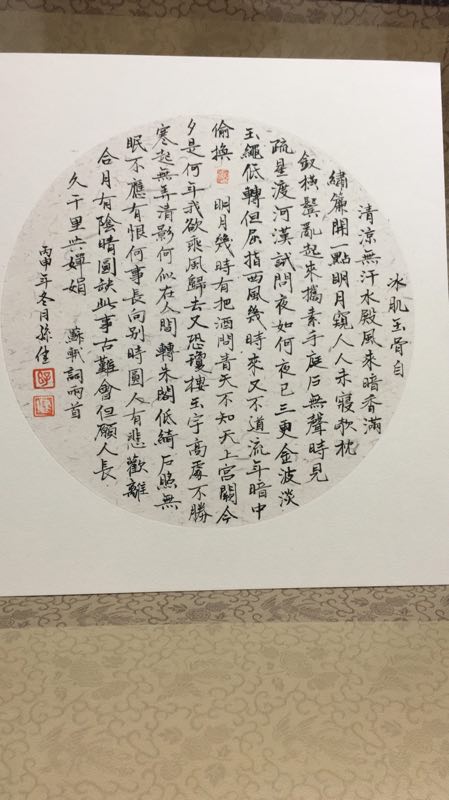 冰肌玉骨自
清涼無汗水殿風來暗香滿
繡簾開一點明月窺人人未寢欹枕
釵橫鬢亂起來攜素手庭戶無聲時見
疏星渡河漢試問夜如何夜已三更金波淡
玉繩低轉但屈指西風幾時來又不道流年暗中
偷換 明月幾時有把酒問青天不知天上宮闕今
夕是何年我欲乘風歸去又恐瓊樓玉宇高處不勝
寒起舞弄清影何似在人間 轉朱閣低綺戶照無
眠不應有恨何事長向別時圓人有悲歡離
合月有陰晴圓缺此事古難會但願人長
久千里共嬋娟 蘇軾詞兩首
丙申年冬月孫佳